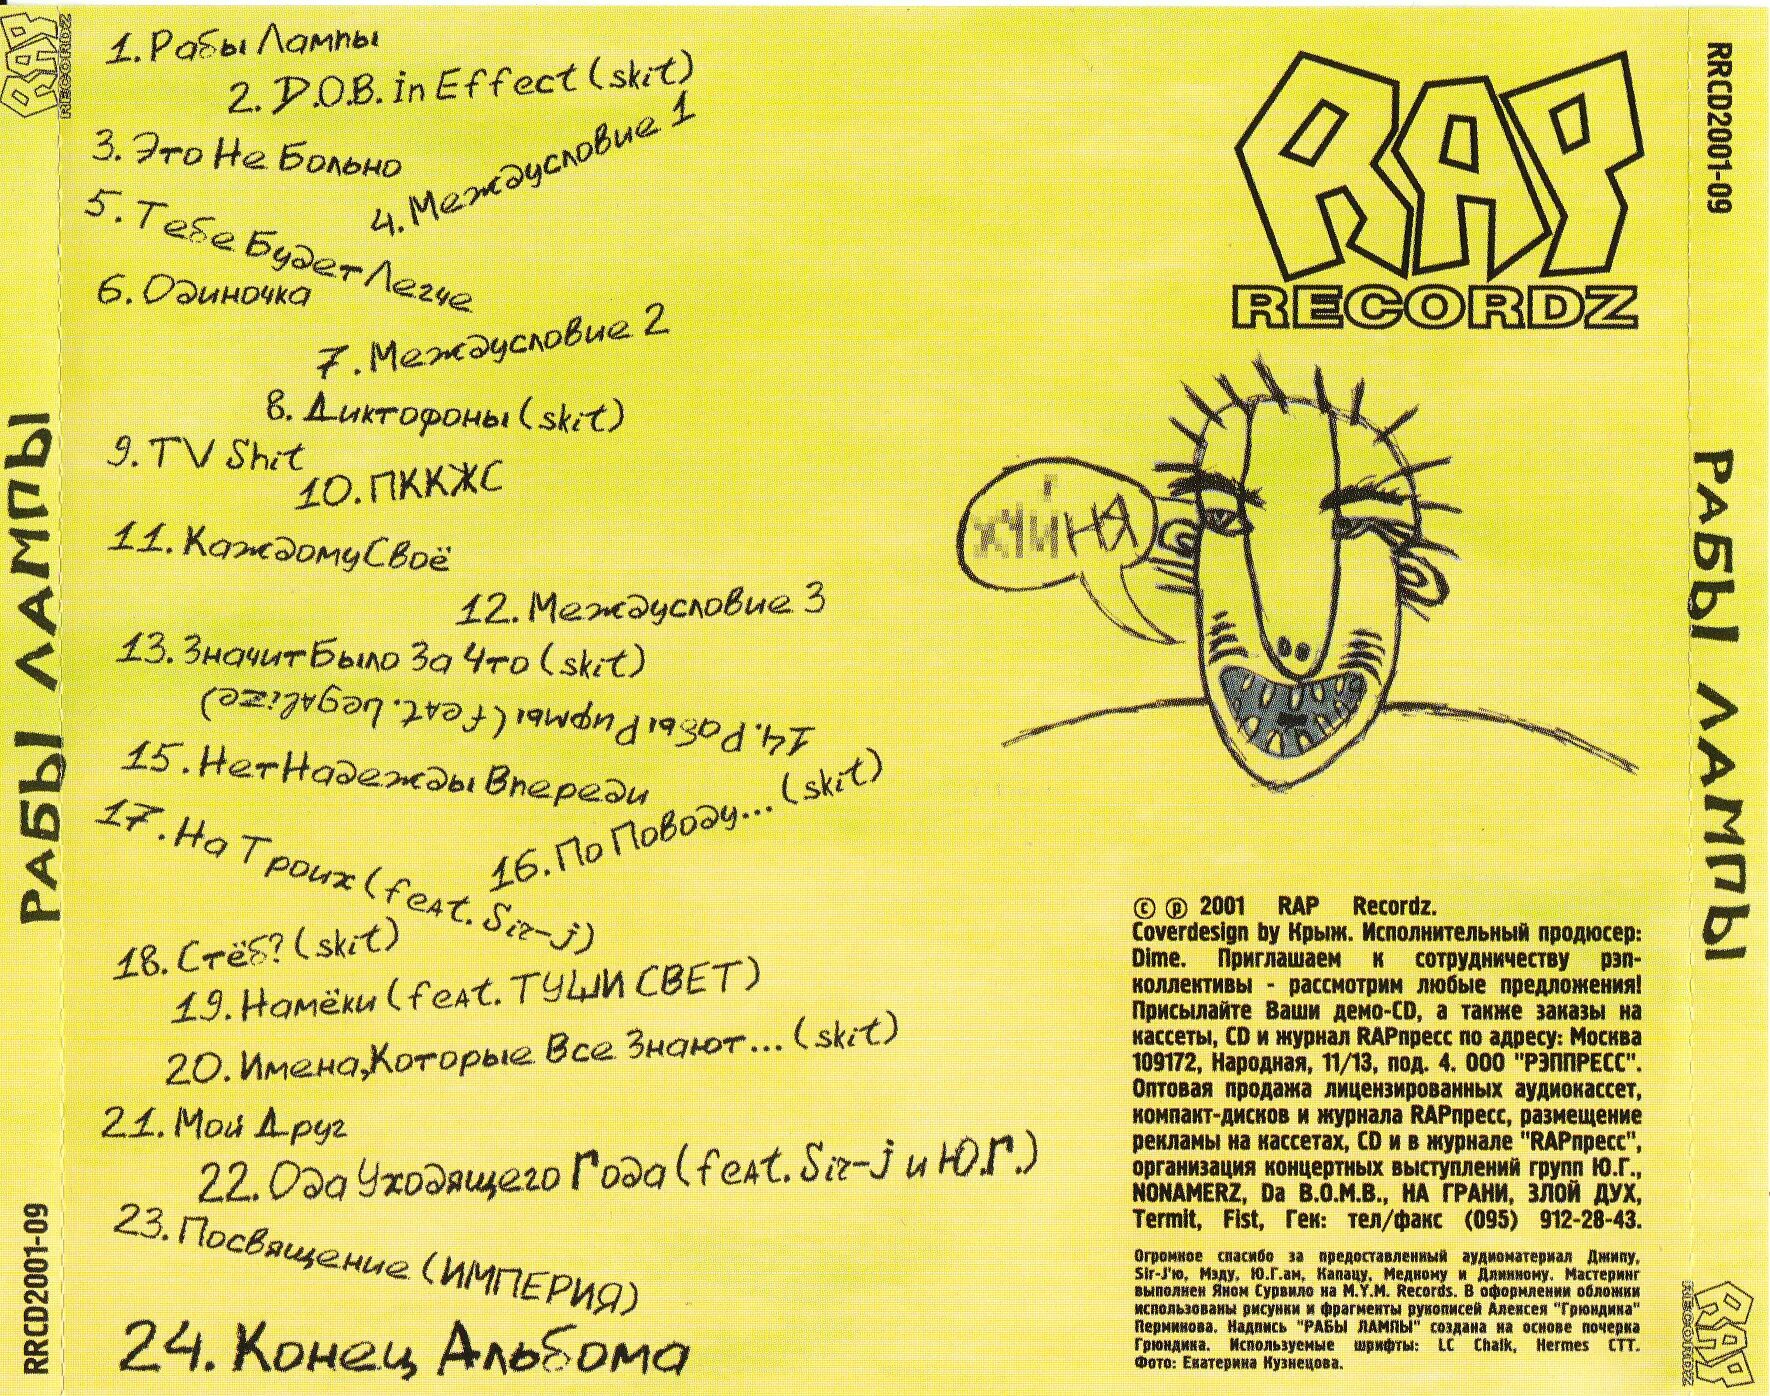 1. Рабы Лампы
2. D.O.B. in Effect (skit)
3. Это Не Больно
4. Междусловие 1
5. Тебе Будет Легче
6. Одиночка
7. Междусловие 2
8. Диктофоны (skit)
9. TV Shit
10. ПККЖС
11. Каждому Своё
12. Междусловие 3
13. Значит Было За Что (skit)
14. Рабы Рифмы (feat. Legalize)
15. Нет Надежды Впереди
16. По Поводу... (skit)
17. На Троих (feat. Sir-j)
18. Стёб? (skit)
19. Намёки (feat. ТУШИ СВЕТ)
20. Имена, Которые Все Знают... (skit)
21. Мой Друг
22. Ода Уходящего Года (feat. Sir-j и Ю.Г.)
23. Посвящение (ИМПЕРИЯ)
24. Конец Альбома
RAP
RECORDZ
© ℗ 2001 RAP Recordz.
Coverdesign by Крыж. Исполнительный продюсер:
Dime. Приглашаем к сотрудничеству рэп-
коллективы - рассмотрим любые предложения!
Присылайте Ваши демо-CD, а также заказы на
кассеты, CD и журнал RAPпресс по адресу: Москва
109172, Народная, 11/13, под. 4. ООО "РЭППРЕСС".
Оптовая продажа лицензированных аудиокассет,
компакт-дисков и журнала RAPпресс, размещение
рекламы на кассетах, CD и в журнале "RAPпресс",
организация концертных выступлений групп Ю.Г.,
NONAMERZ, Da B.O.M.B., НА ГРАНИ, ЗЛОЙ ДУХ,
Termit, Fist, Гек: тел/факс (095) 912-28-43.
Огромное спасибо за предоставленный аудиоматериал Джипу,
Sir-J'ю, Мэду, Ю.Г.ам, Капацу, Медному и Длинному. Мастеринг
выполнен Яном Сурвило на M.Y.M. Records. В оформлении обложки
использованы рисунки и фрагменты рукописей Алексея "Грюндика"
Перминова. Надпись "РАБЫ ЛАМПЫ" создана на основе почерка
Грюндика. Используемые шрифты: LC Chalk, Hermes CTT.
Фото: Екатерина Кузнецова.
RAP
RECORDZ
РАБЫ ЛАМПЫ
RRCD2001-09
RRCD2001-09
РАБЫ ЛАМПЫ
RAP
RECORDZ